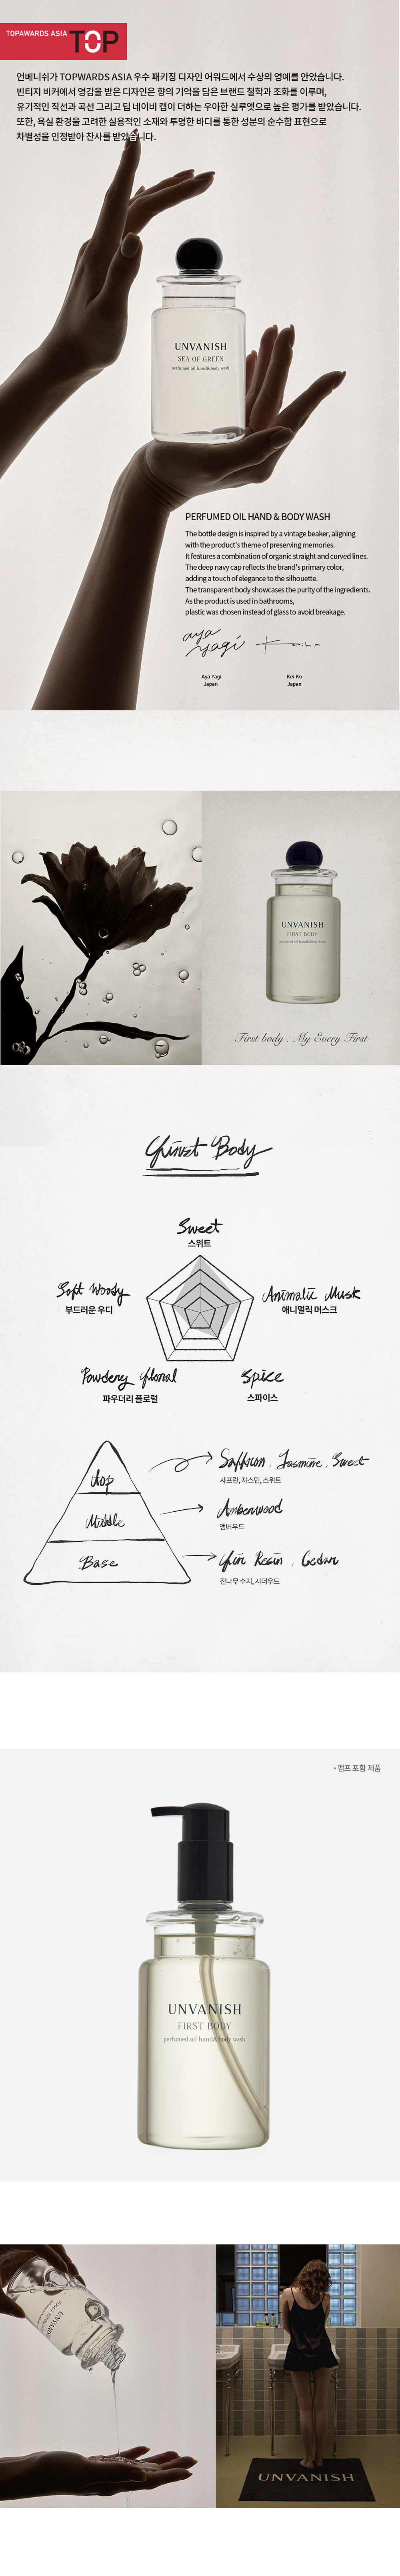 TOPAWARDS ASIA TOP
언베니쉬가 TOPWARDS ASIA 우수 패키징 디자인 어워드에서 수상의 영예를 안았습니다.
빈티지 비커에서 영감을 받은 디자인은 향의 기억을 담은 브랜드 철학과 조화를 이루며,
유기적인 직선과 곡선 그리고 딥 네이비 캡이 더하는 우아한 실루엣으로 높은 평가를 받았습니다.
또한, 욕실 환경을 고려한 실용적인 소재와 투명한 바디를 통한 성분의 순수함 표현으로
차별성을 인정받아 찬사를 받았습니다.
UNVANISH
SEA OF GREEN
perfumed oil hand&body wash
PERFUMED OIL HAND & BODY WASH
The bottle design is inspired by a vintage beaker, aligning
with the product's theme of preserving memories.
It features a combination of organic straight and curved lines.
The deep navy cap reflects the brand's primary color,
adding a touch of elegance to the silhouette.
The transparent body showcases the purity of the ingredients.
As the product is used in bathrooms,
plastic was chosen instead of glass to avoid breakage.
aya yagi
Aya Yagi
Japan
Kei Ko
Japan
UNVANISH
FIRST BODY
perfumed oil hand&body wash
First body : My Every First
First Body
Sweet
스위트
Soft Woody
부드러운 우디
Animalic Musk
애니멀릭 머스크
Powdery floral
파우더리 플로럴
Spice
스파이스
Top
Saffron, Jasmine, Sweet
샤프란, 쟈스민, 스위트
Middle
Amberwood
앰버우드
Base
Fir Resin, Cedar
전나무 수지, 시더우드
* 펌프 포함 제품
UNVANISH
FIRST BODY
perfumed oil hand&body wash
UNVANISH
UNVANISH